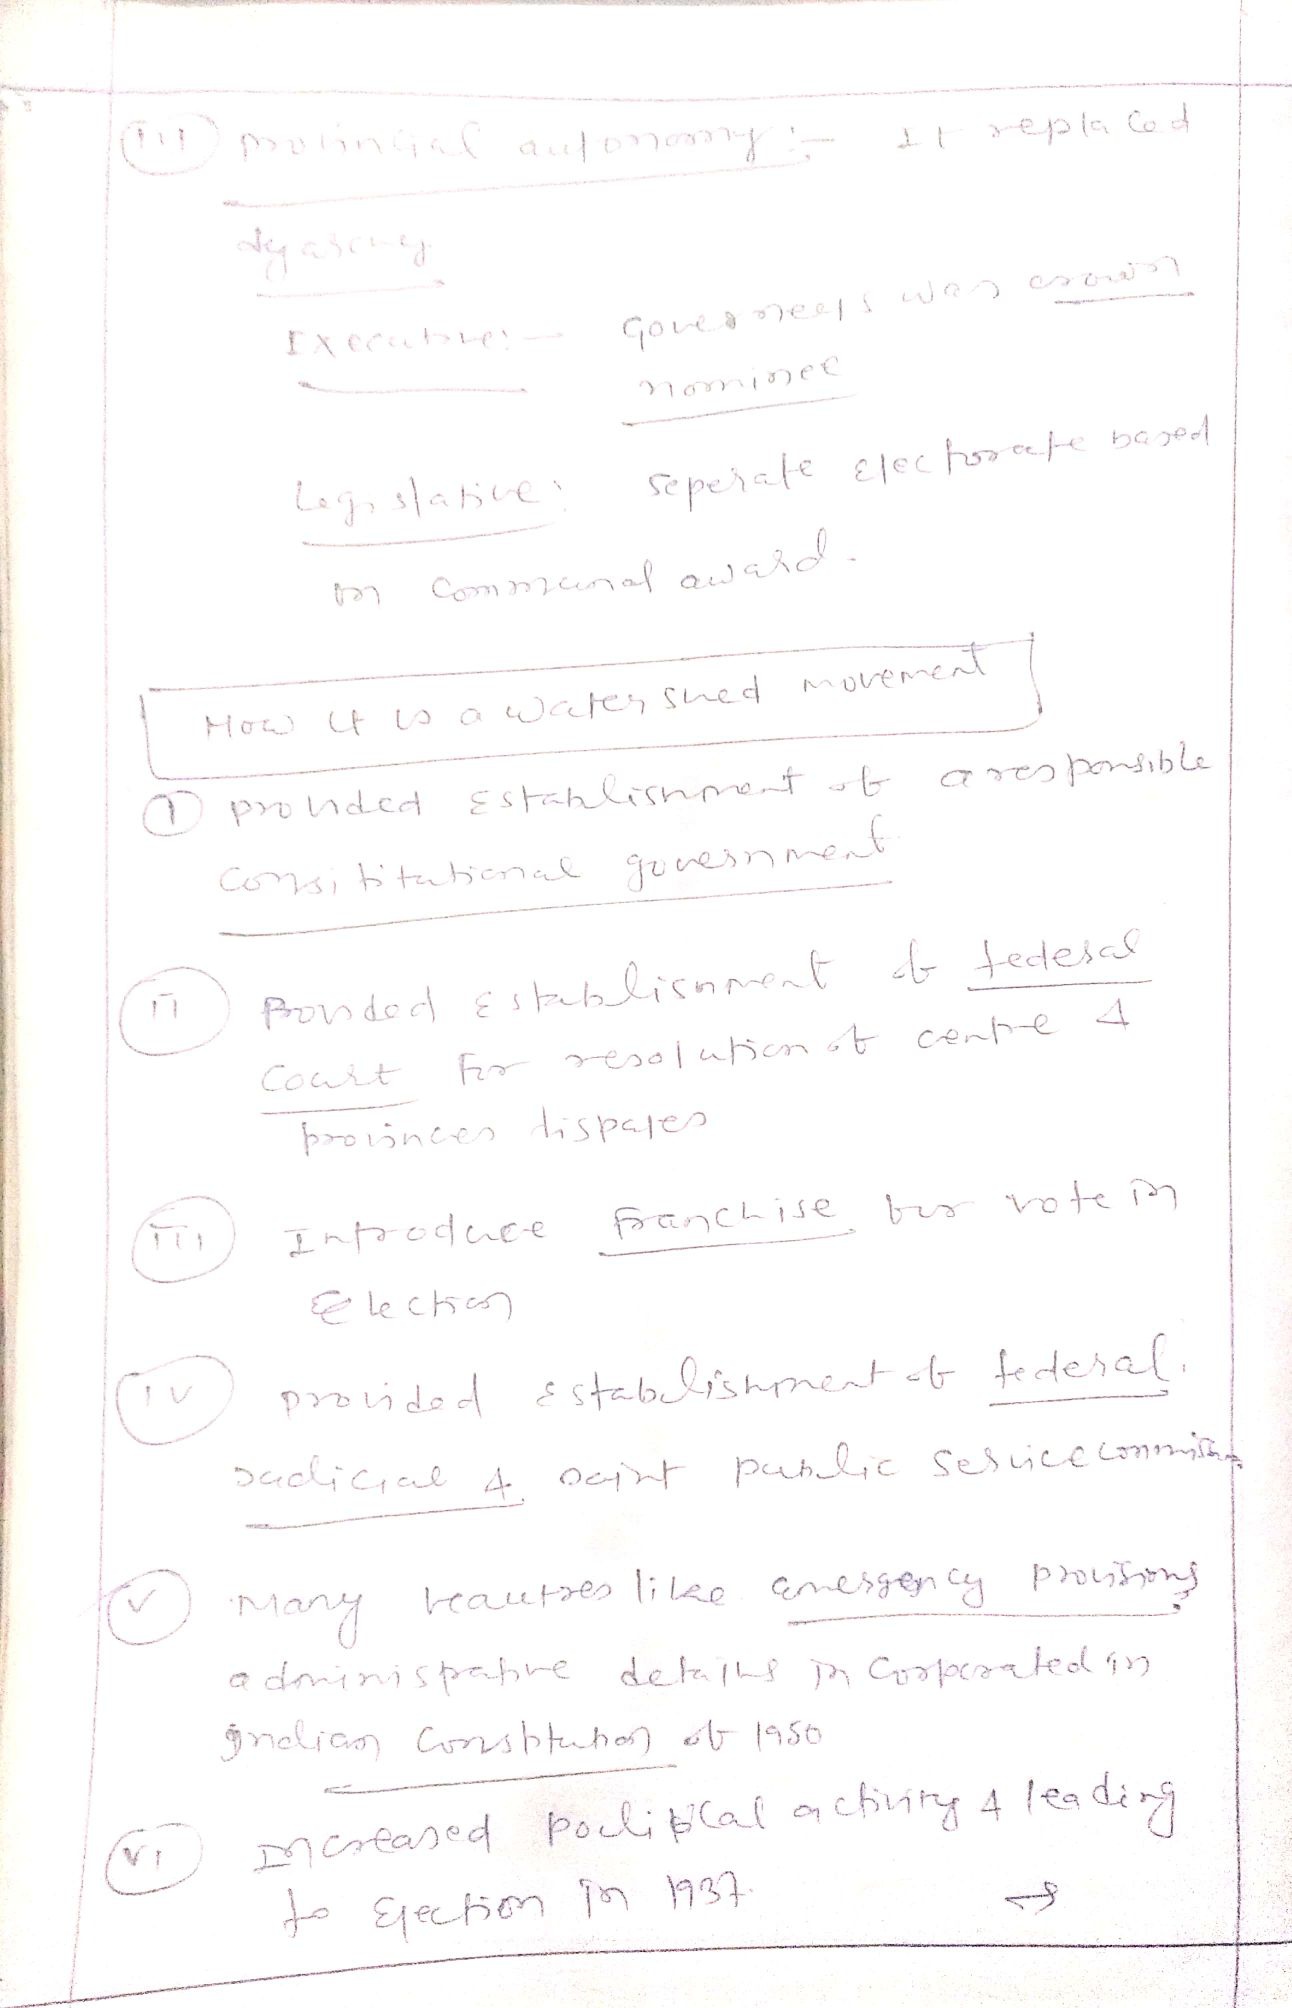 (iii) provincial autonomy :- It replaced
dyarchy
Executive :- Governeers was crown
nominee
Legislative : Seperate electorate based
on Communal award.
How it is a watershed movement
(I) provided Establishment of a responsible
Consititutional government
(ii) Provided Establishment of federal
Court for resolution of centre &
provinces disputes
(iii) Introduce franchise for vote in
Election
(iv) provided establishment of federal.
Judicial & Joint public service commission
(v) Many feautres like emergency provisions,
administrative details incorporated in
Indian Constitution of 1950
(vi) Increased political activity & leading
to Election in 1937.